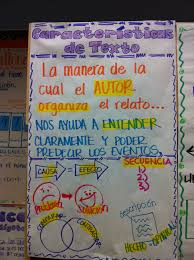 Características
de Texto
La manera de la
cual el AUTOR
organiza el relato...
NOS AYUDA A ENTENDER
CLARAMENTE Y PODER
PREDECIR LOS EVENTOS.
CAUSA EFECTO
SECUENCIA
1)
2)
3)
Problema solución
descripción
COMPARAR CONTRASTAR
HECHO OPINIÓN